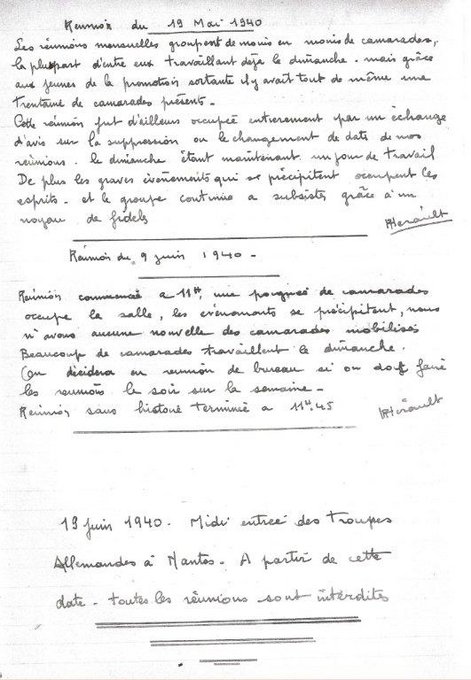 Reunion du 19 Mai 1940
Les réunions mensuelles groupent de moins en moins de camarades,
la plupart d'entre eux travaillant déjà le dimanche. mais grâce
aux jeunes de la promotion sortante il y avait tout de même une
trentaine de camarades présents.
Cette réunion fut d'ailleurs occupée entierement par un échange
d'avis sur la suppression ou le changement de date de nos
réunions. le dimanche étant maintenant un jour de travail
De plus les graves évènements qui se précipitent occupent les
esprits. et le groupe continue a subsister grâce à un
noyau de fidels
Hérault
Réunion du 9 juin 1940 -
Reunion commencée a 11H, une poignée de camarades
occupe la salle, les évenements se précipitent, nous
n'avons aucune nouvelle des camarades mobilisés
Beaucoup de camarades travaillent le dimanche.
On décidera en reunion de bureau si on doit faire
les reunions le soir sur la semaine -
Reunion sans histoire terminée a 11H.45
Hérault
19 juin 1940. Midi entrée des Troupes
Allemandes à Nantes. A partir de cette
date - toutes les réunions sont intérdites